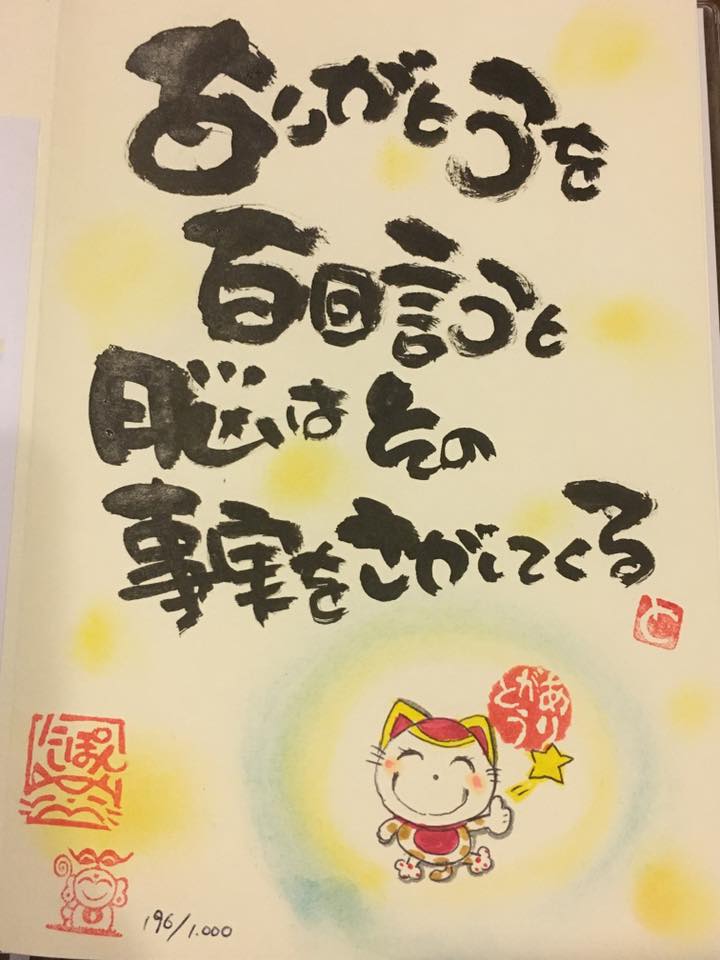 ありがとうを
百回言うと
脳はその
事実をさがしてくる
と
ありがとう
にっぽん
196/1.000